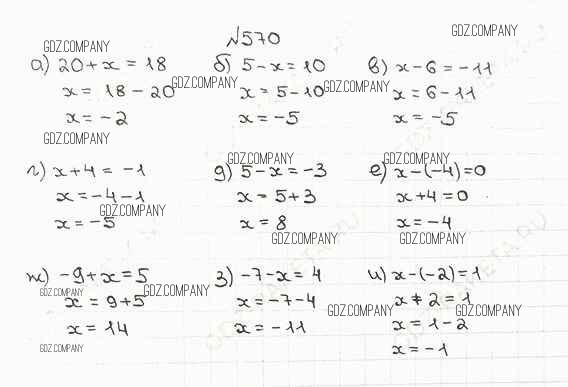 №570
GDZ.COMPANY
GDZ.COMPANY
а) 20+x=18 б) 5-x=10 в) x-6=-11
GDZ.COMPANY GDZ.COMPANY
x=18-20 x=5-10 x=6-11
x=-2 x=-5 x=-5
GDZ.COMPANY
GDZ.COMPANY GDZ.COMPANY
г) x+4=-1 д) 5-x=-3 е) x-(-4)=0
x=-4-1 x=5+3 x+4=0
GDZ.COMPANY
x=-5 x=8 x=-4
GDZ.COMPANY GDZ.COMPANY
ж) -9+x=5 з) -7-x=4 и) x-(-2)=1
GDZ.COMPANY GDZ.COMPANY
x=9+5 x=-7-4 x+2=1
GDZ.COMPANY GDZ.COMPANY
x=14 x=-11 x=1-2
GDZ.COMPANY
x=-1